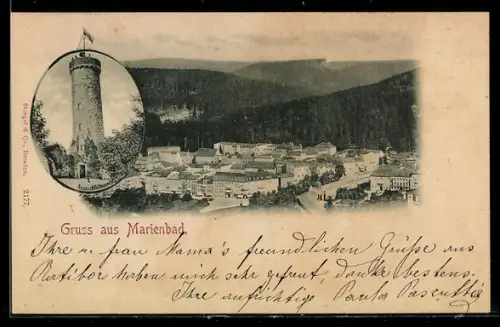 Stengel & Co., Dresden. 2177.
Gruss aus Marienbad.
Ihre u. frau Mama's freundlichen Grüße aus
Ratibor haben mich sehr gefreut, danke bestens.
Ihre aufrichtige Paula